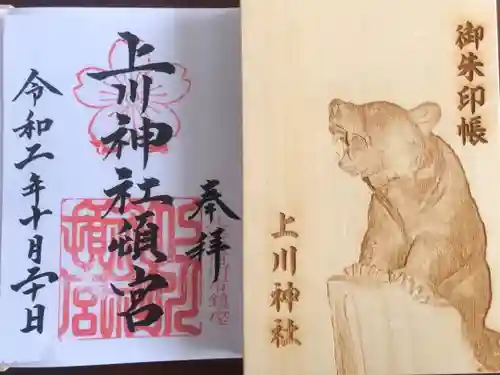 奉拝
上川神社頓宮
令和二年十月二十日
御朱印帳
上川神社